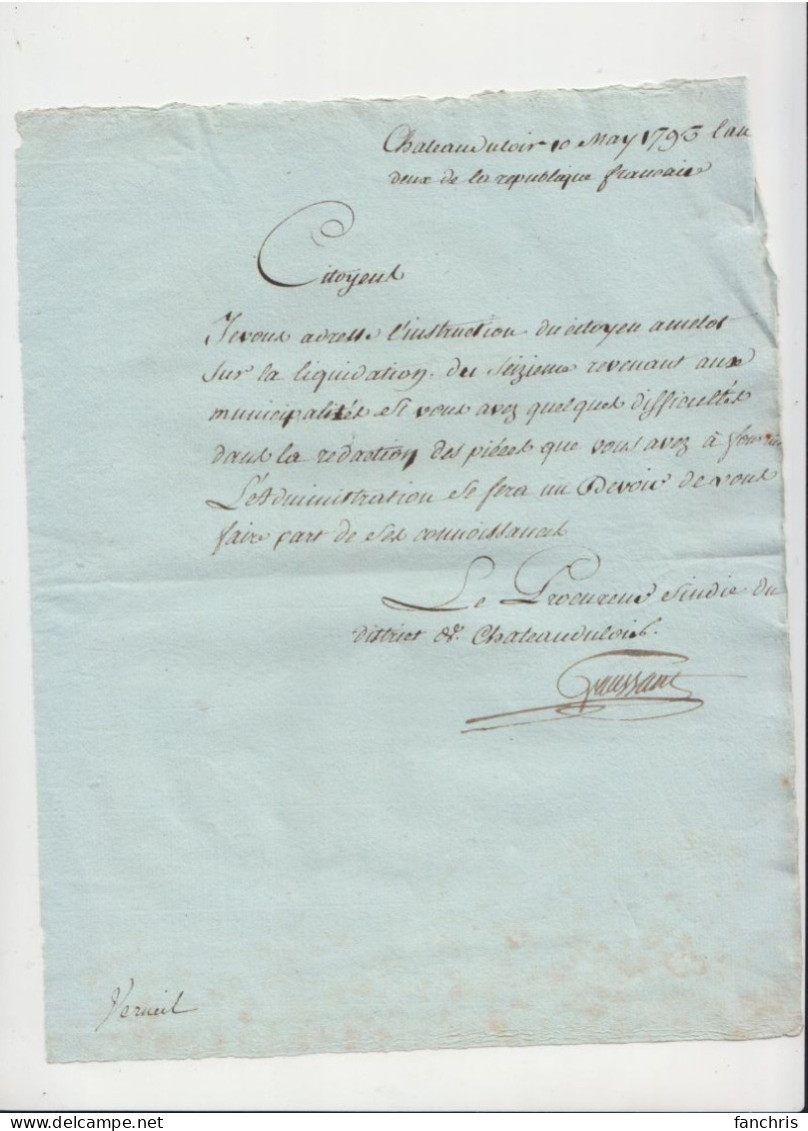 Chateauduloir 10 May 1793 l'an
deux de la republique francaise
Citoyens
Je vous adresse l'instruction du citoyen amelot
sur la liquidation du seizieme revenant aux
municipalités si vous avez quelques difficultés
dans la redaction des piéces que vous avez à fournir
L'administration se fera un Devoir de vous
faire part de ses connoissances
Le Procureur Sindic du
district de Chateauduloir.
Verneil
fanchris